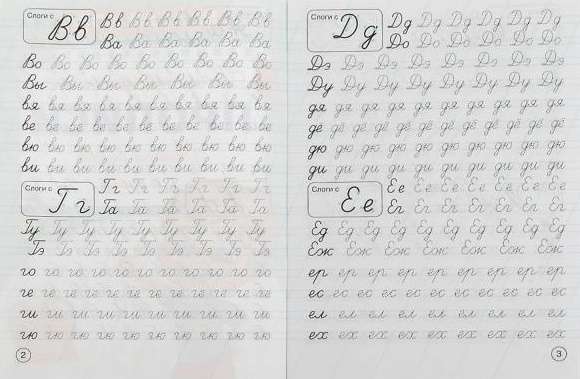 Слоги с Вв
Вв Вв Вв Вв Вв Вв Вв
Ва Ва Ва Ва Ва Ва Ва
Во Во Во Во Во Во Во Во Во
Вы Вы Вы Вы Вы Вы Вы
вя вя вя вя вя вя вя вя вя вя
ве ве ве ве ве ве ве ве ве ве
вю вю вю вю вю вю вю вю
ви ви ви ви ви ви ви ви ви ви
Слоги с Гг
Гг Гг Гг Гг Гг Гг Гг
Га Га Га Га Га Га
Гу Гу Гу Гу Гу Гу Гу Гу
Гэ Гэ Гэ Гэ Гэ Гэ Гэ Гэ
го го го го го го го го го го
ге ге ге ге ге ге ге ге ге ге ге
ги ги ги ги ги ги ги ги ги ги
гю гю гю гю гю гю гю гю гю
2
Слоги с Дд
Дд Дд Дд Дд Дд Дд
До До До До До До
Дэ Дэ Дэ Дэ Дэ Дэ Дэ Дэ
Ду Ду Ду Ду Ду Ду Ду Ду
дя дя дя дя дя дя дя дя дя дя
дё дё дё дё дё дё дё дё дё дё
дю дю дю дю дю дю дю дю дю
ди ди ди ди ди ди ди ди ди ди
Слоги с Ее
Ее Ее Ее Ее Ее Ее Ее
Ег Ег Ег Ег Ег Ег Ег
Ед Ед Ед Ед Ед Ед Ед Ед Ед
Еж Еж Еж Еж Еж Еж Еж
ер ер ер ер ер ер ер ер ер
ес ес ес ес ес ес ес ес ес ес ес
ел ел ел ел ел ел ел ел ел
ех ех ех ех ех ех ех ех ех
3